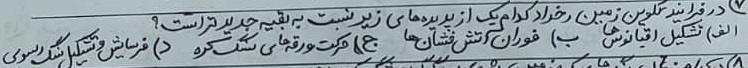 ۷) در فرایند تکوین زمین رخداد کدام یک از پدیده های زیر نسبت به بقیه جدیدتر است؟
الف) تشکیل اقیانوس ها ب) فوران آتش فشان ها ج) حرکت ورقه های سنگ کره د) فرسایش و تشکیل سنگ رسوبی